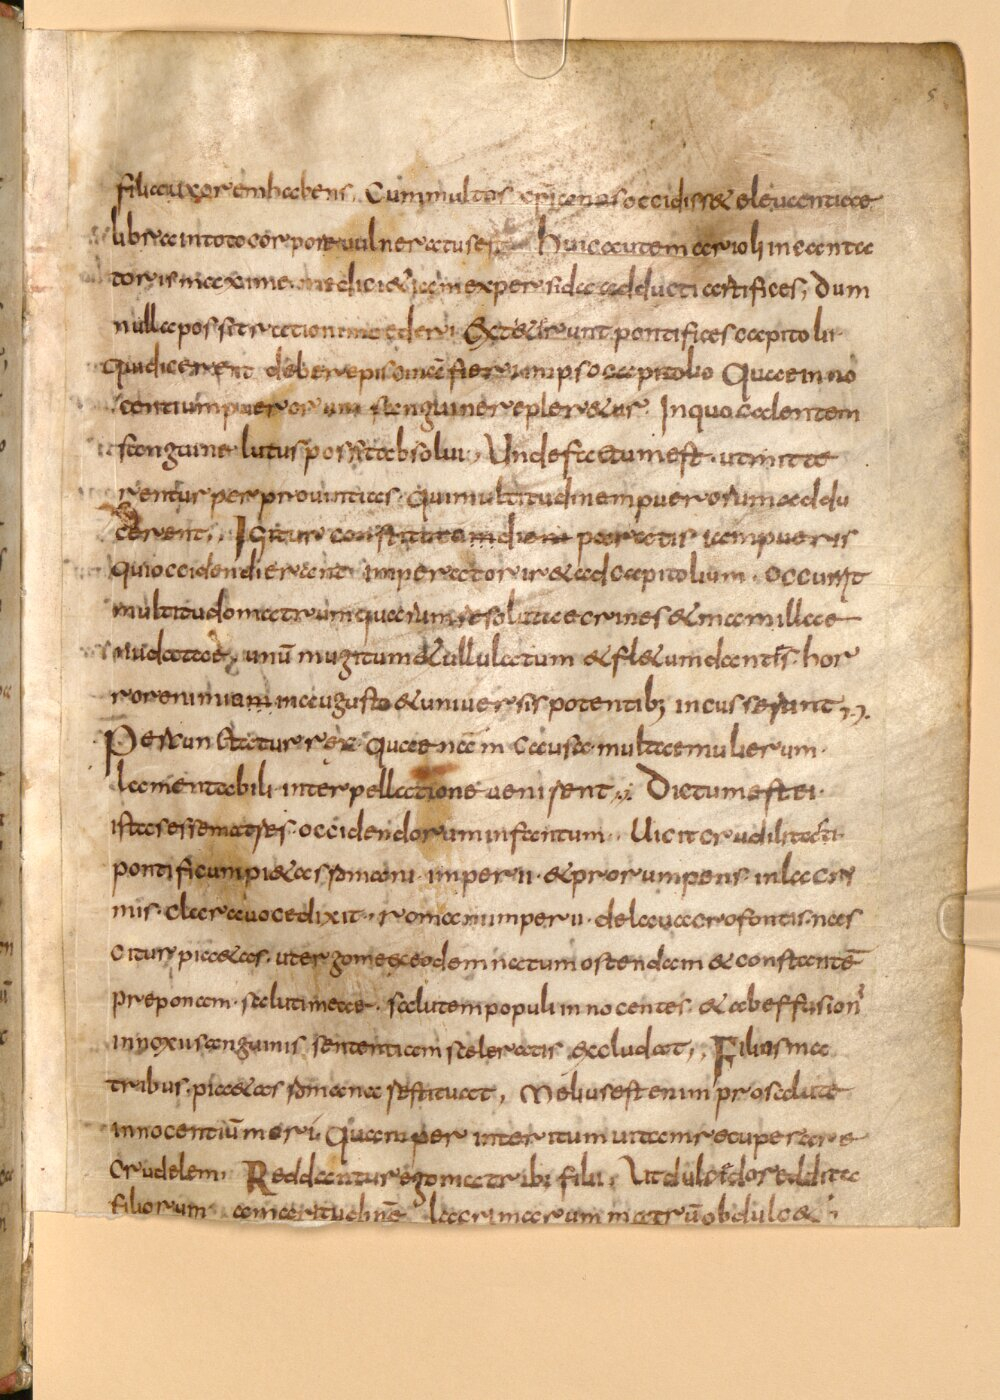 5
filia uxorem habens. Cum multas xp̃ianos occidiss& eleuantiae
libra in toto corpore uulneratus est. Huic autem arioli incanta
toris maxime medici & iam ex persida adducti artifices, Dum
nulla possit ratione mederi. Extiterunt pontifices capitolii
qui dicerent debere piscinã fieri in ipso capitolio Quae inno
centium puerorum sanguine repler&ur. In qua cadentem
sanguine lutus possit absolui, Unde factum est. ut mitte
rentur per prouintias. qui multitudinem puerorum addu
cerent. Igitur constituta diem paratis iam pueris
qui occidendi erant imperator ir& ad capitolium. occurrit
multitudo matrum quarum resolutae crines & mamillae
nudatae, unũ mugitum & ullulatum & fl&um dantes. hor
rorem nimiam in augusto & uniuersis potentibꝫ incusserunt
Percunctatur rex. quae nam causa multae mulierum.
lamentabili interpellatione uenisent, Dictum est ei.
istas esse matres. occidendorum infantum. Uicit crudilitatẽ
pontificum pi&as romani imperii. & prorumpens in lacri
mis. clara uoce dixit. romani imperii. de laua cro fontis. nas
citur pi&as. uter gomes eodem natum ostendam & constantẽ
preponam. saluti meae. salutem populi innocentes. & ab effusionẽ
innoxu sanguinis sententiam sceleratis excludat, Filios ma
tribus. pi&as romana restituat, Melius est enim pro salute
innocentiũ meri. Quam per interitum uitam recuperare
crudelem. Reddantur ego matribꝫ filii. Ut dulcedo reddita
filiorum amaritudinẽ lacrimarum matrũ obdulc&